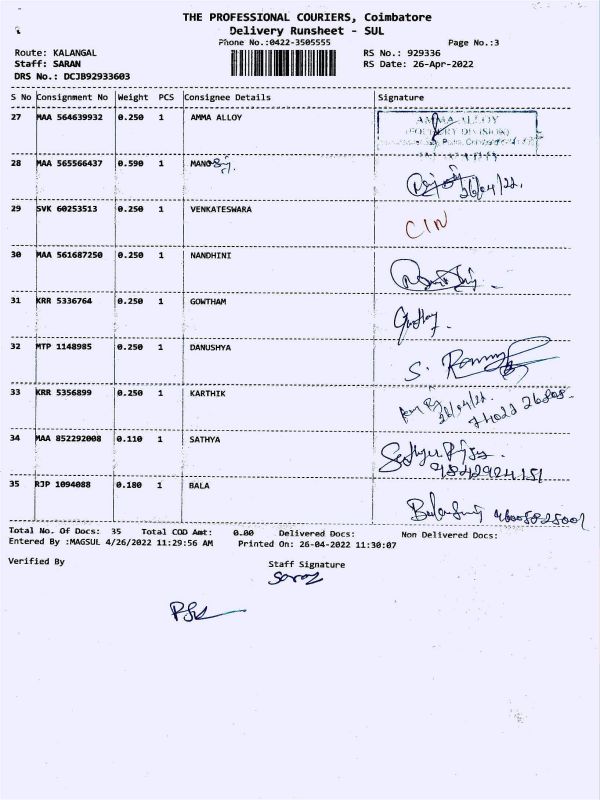 THE PROFESSIONAL COURIERS, Coimbatore
Delivery Runsheet - SUL
Phone No.:0422-3505555
Page No.:3
Route: KALANGAL
RS No.: 929336
Staff: SARAN
RS Date: 26-Apr-2022
DRS No.: DCJB92933603
S No Consignment No Weight PCS Consignee Details Signature
27 MAA 564639932 0.250 1 AMMA ALLOY
AMMA ALLOY
28 MAA 565566437 0.590 1 MANO
26/04/22.
29 SVK 60253513 0.250 1 VENKATESWARA
CIN
30 MAA 561687250 0.250 1 NANDHINI
31 KRR 5336764 0.250 1 GOWTHAM
32 MTP 1148985 0.250 1 DANUSHYA
S.
33 KRR 5356899 0.250 1 KARTHIK
26/04/22.
34 MAA 852292008 0.110 1 SATHYA
9842924151
35 RJP 1094088 0.180 1 BALA
Total No. Of Docs: 35 Total COD Amt: 0.00 Delivered Docs: Non Delivered Docs:
Entered By :MAGSUL 4/26/2022 11:29:56 AM Printed On: 26-04-2022 11:30:07
Verified By
Staff Signature